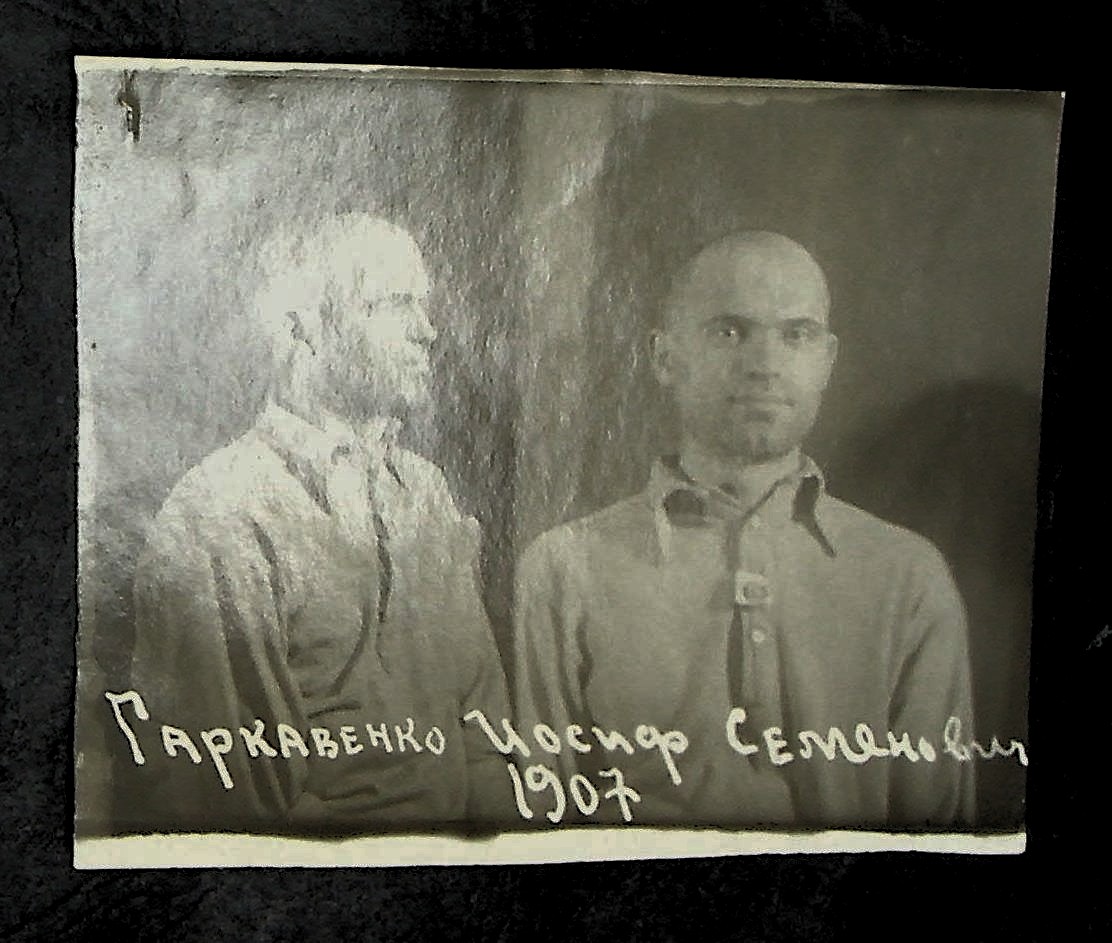 Гаркавенко Иосиф Семенович
1907